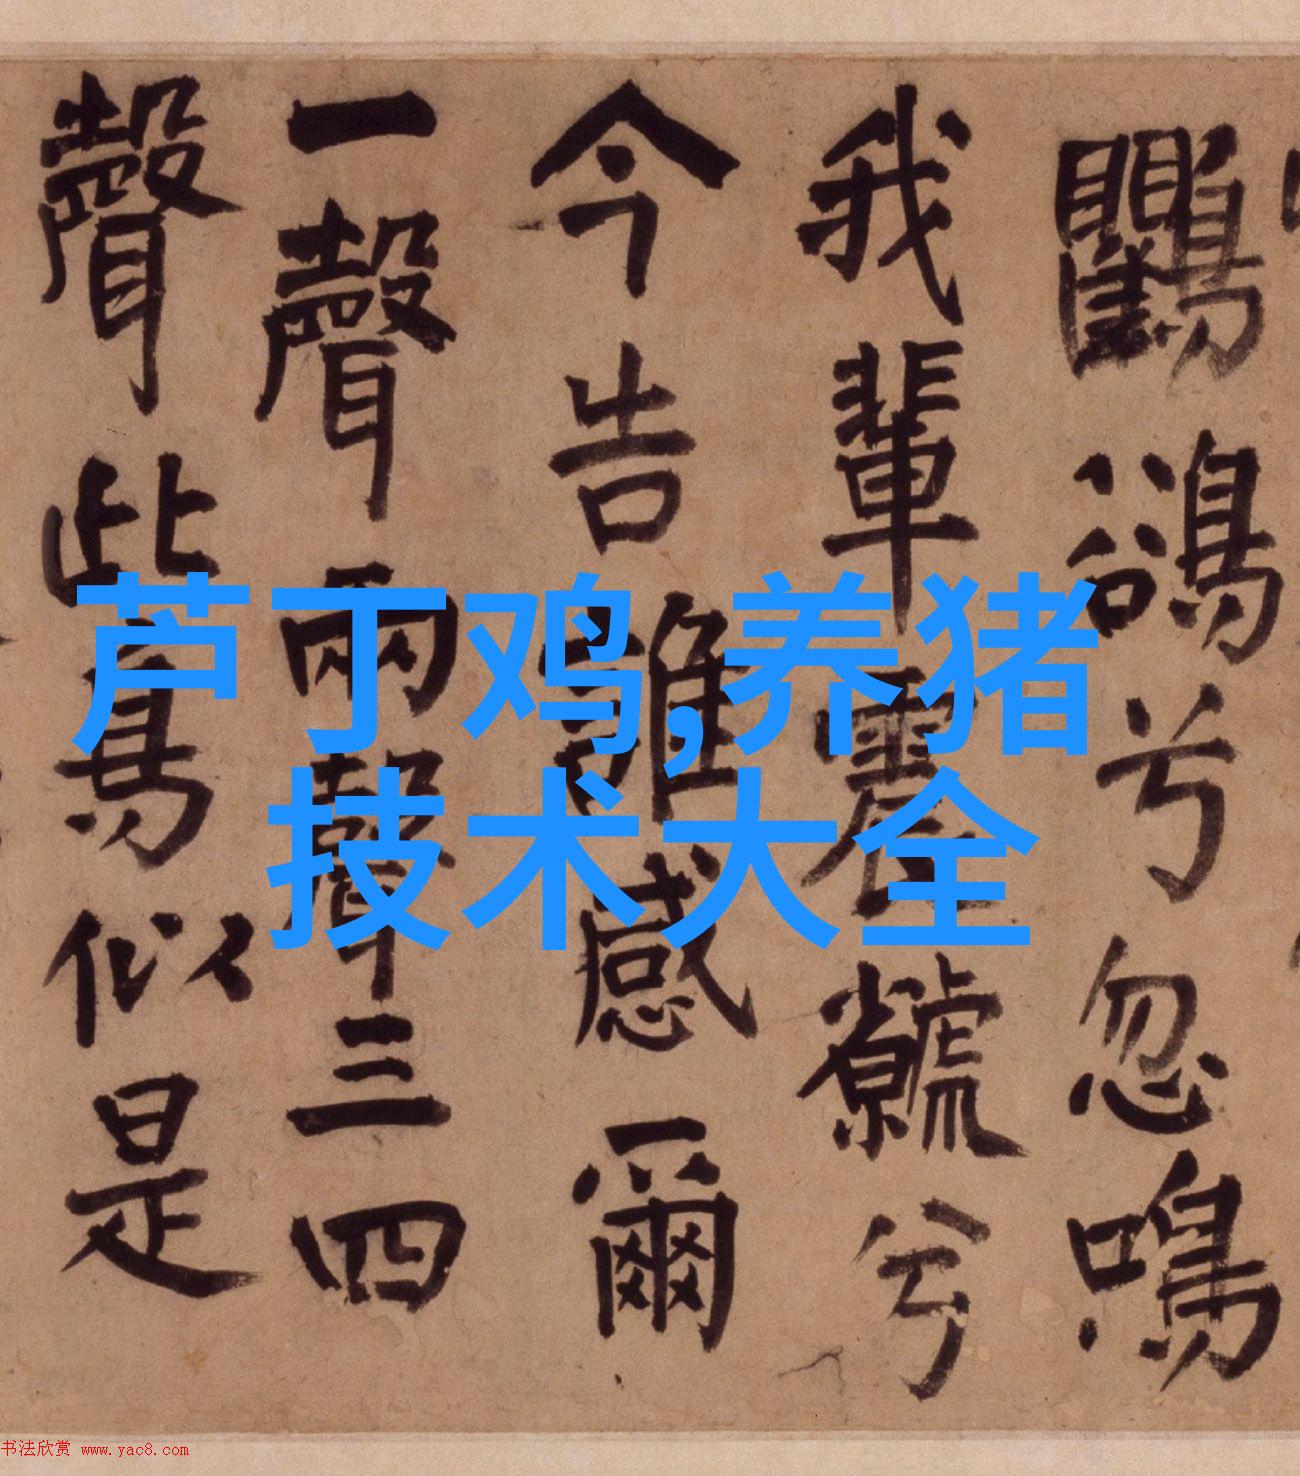 芦丁鸡,养猪
技术大全
鸜鵒兮忽鳴
我輩震虩兮
今告誰感爾
一聲兩聲三四
聲此鳥似是
书法欣赏 www.yac8.com